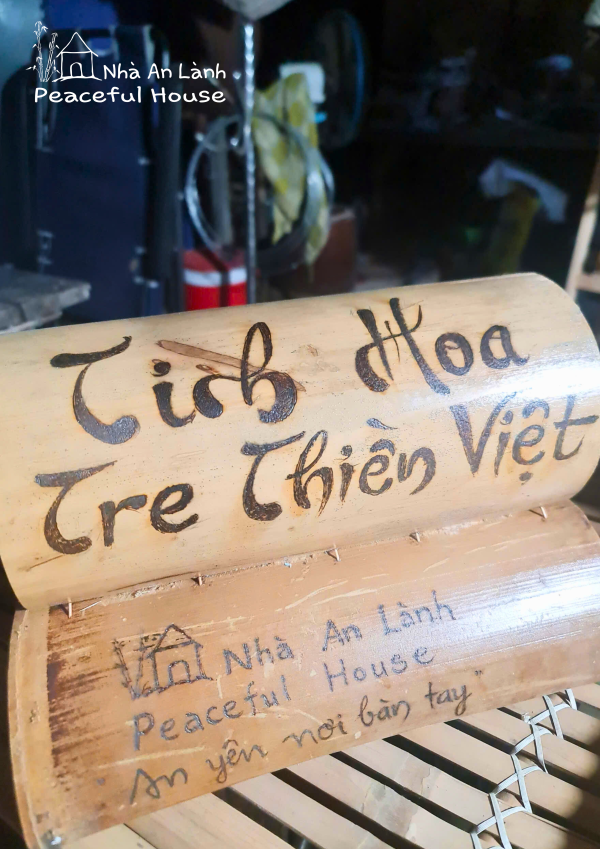 Nhà An Lành
Peaceful House
Tich Hoa
Tre Thiền Việt
Nhà An Lành
Peaceful House
"An yên nơi bàn tay"